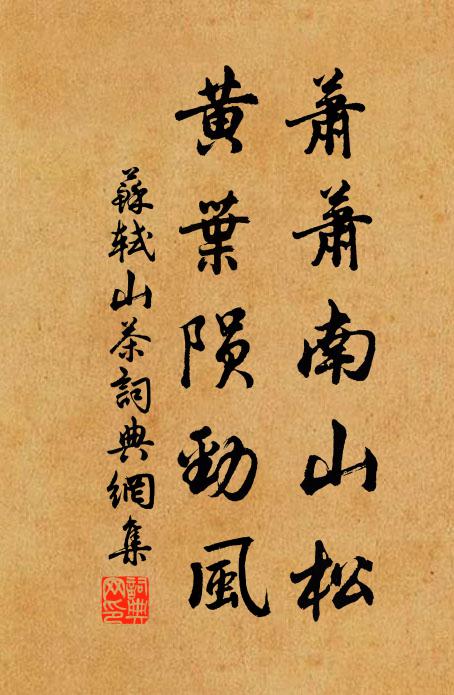 蕭蕭南山松
黄葉隕勁風
蘇軾山茶詞典網集
詞典網印